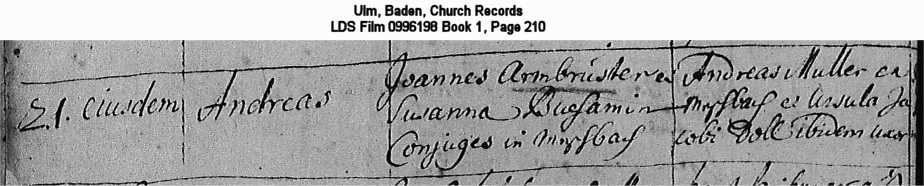 Ulm, Baden, Church Records
LDS Film 0996198 Book 1, Page 210
21. eiusdem
Andreas
Joannes Armbruster et
Susanna
Conjuges in Mößbach
Andreas Muller ex
Mößbach et Ursula Ja
cobi Doll ibidem uxor